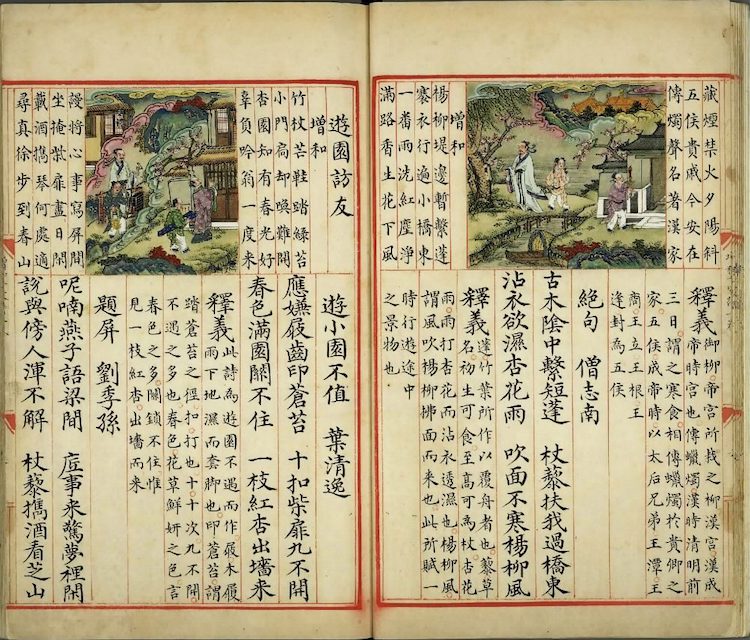 藏煙禁火夕陽斜
五侯貴戚今安在
傳燭聲名著漢家
增和
楊柳堤邊暫繫蓬
寨衣行遍小橋東
一番雨洗紅塵淨
滿路香生花下風
釋義御柳帝宮所栽之柳漢宮漢成
帝時宮也傳蠟燭漢時清明前
三日謂之寒食相傳蠟燭於貴卿之
家五侯成帝時以太后兄弟王潭王
商王立王根王
逢封為五侯
絕句 僧志南
古木陰中繫短蓬 杖藜扶我過橋東
沾衣欲濕杏花雨 吹面不寒楊柳風
釋義蓬竹葉所作以覆舟者也藜草
名初生可食至高可為杖杏花
雨雨打杏花而沾衣透濕也楊柳風
謂風吹楊柳拂面而来也此所賦一
時行遊途中
之景物也
遊園訪友
增和
竹杖芒鞋踏綠苔
小門扃却喚難開
杏園知有春光好
辜負吟翁一度来
謾將心事寫屏間
坐掩柴扉盡日閒
載酒擕琴何處適
尋真徐步到春山
遊小園不值 葉清逸
應嫌屐齒印蒼苔 十扣柴扉九不開
春色滿園關不住 一枝紅杏出墻来
釋義此詩為遊園不遇而作屐木履
雨下地濕而套脚也印蒼苔謂
踏蒼苔之徑扣打也十十次九不開
不遇之多也春色花草鮮妍之色言
春色之多關鎖不住惟
見一枝紅杏出墻而来
題屏 劉季孫
呢喃燕子語梁間 底事来驚夢裡閒
說與傍人渾不解 杖藜擕酒看芝山